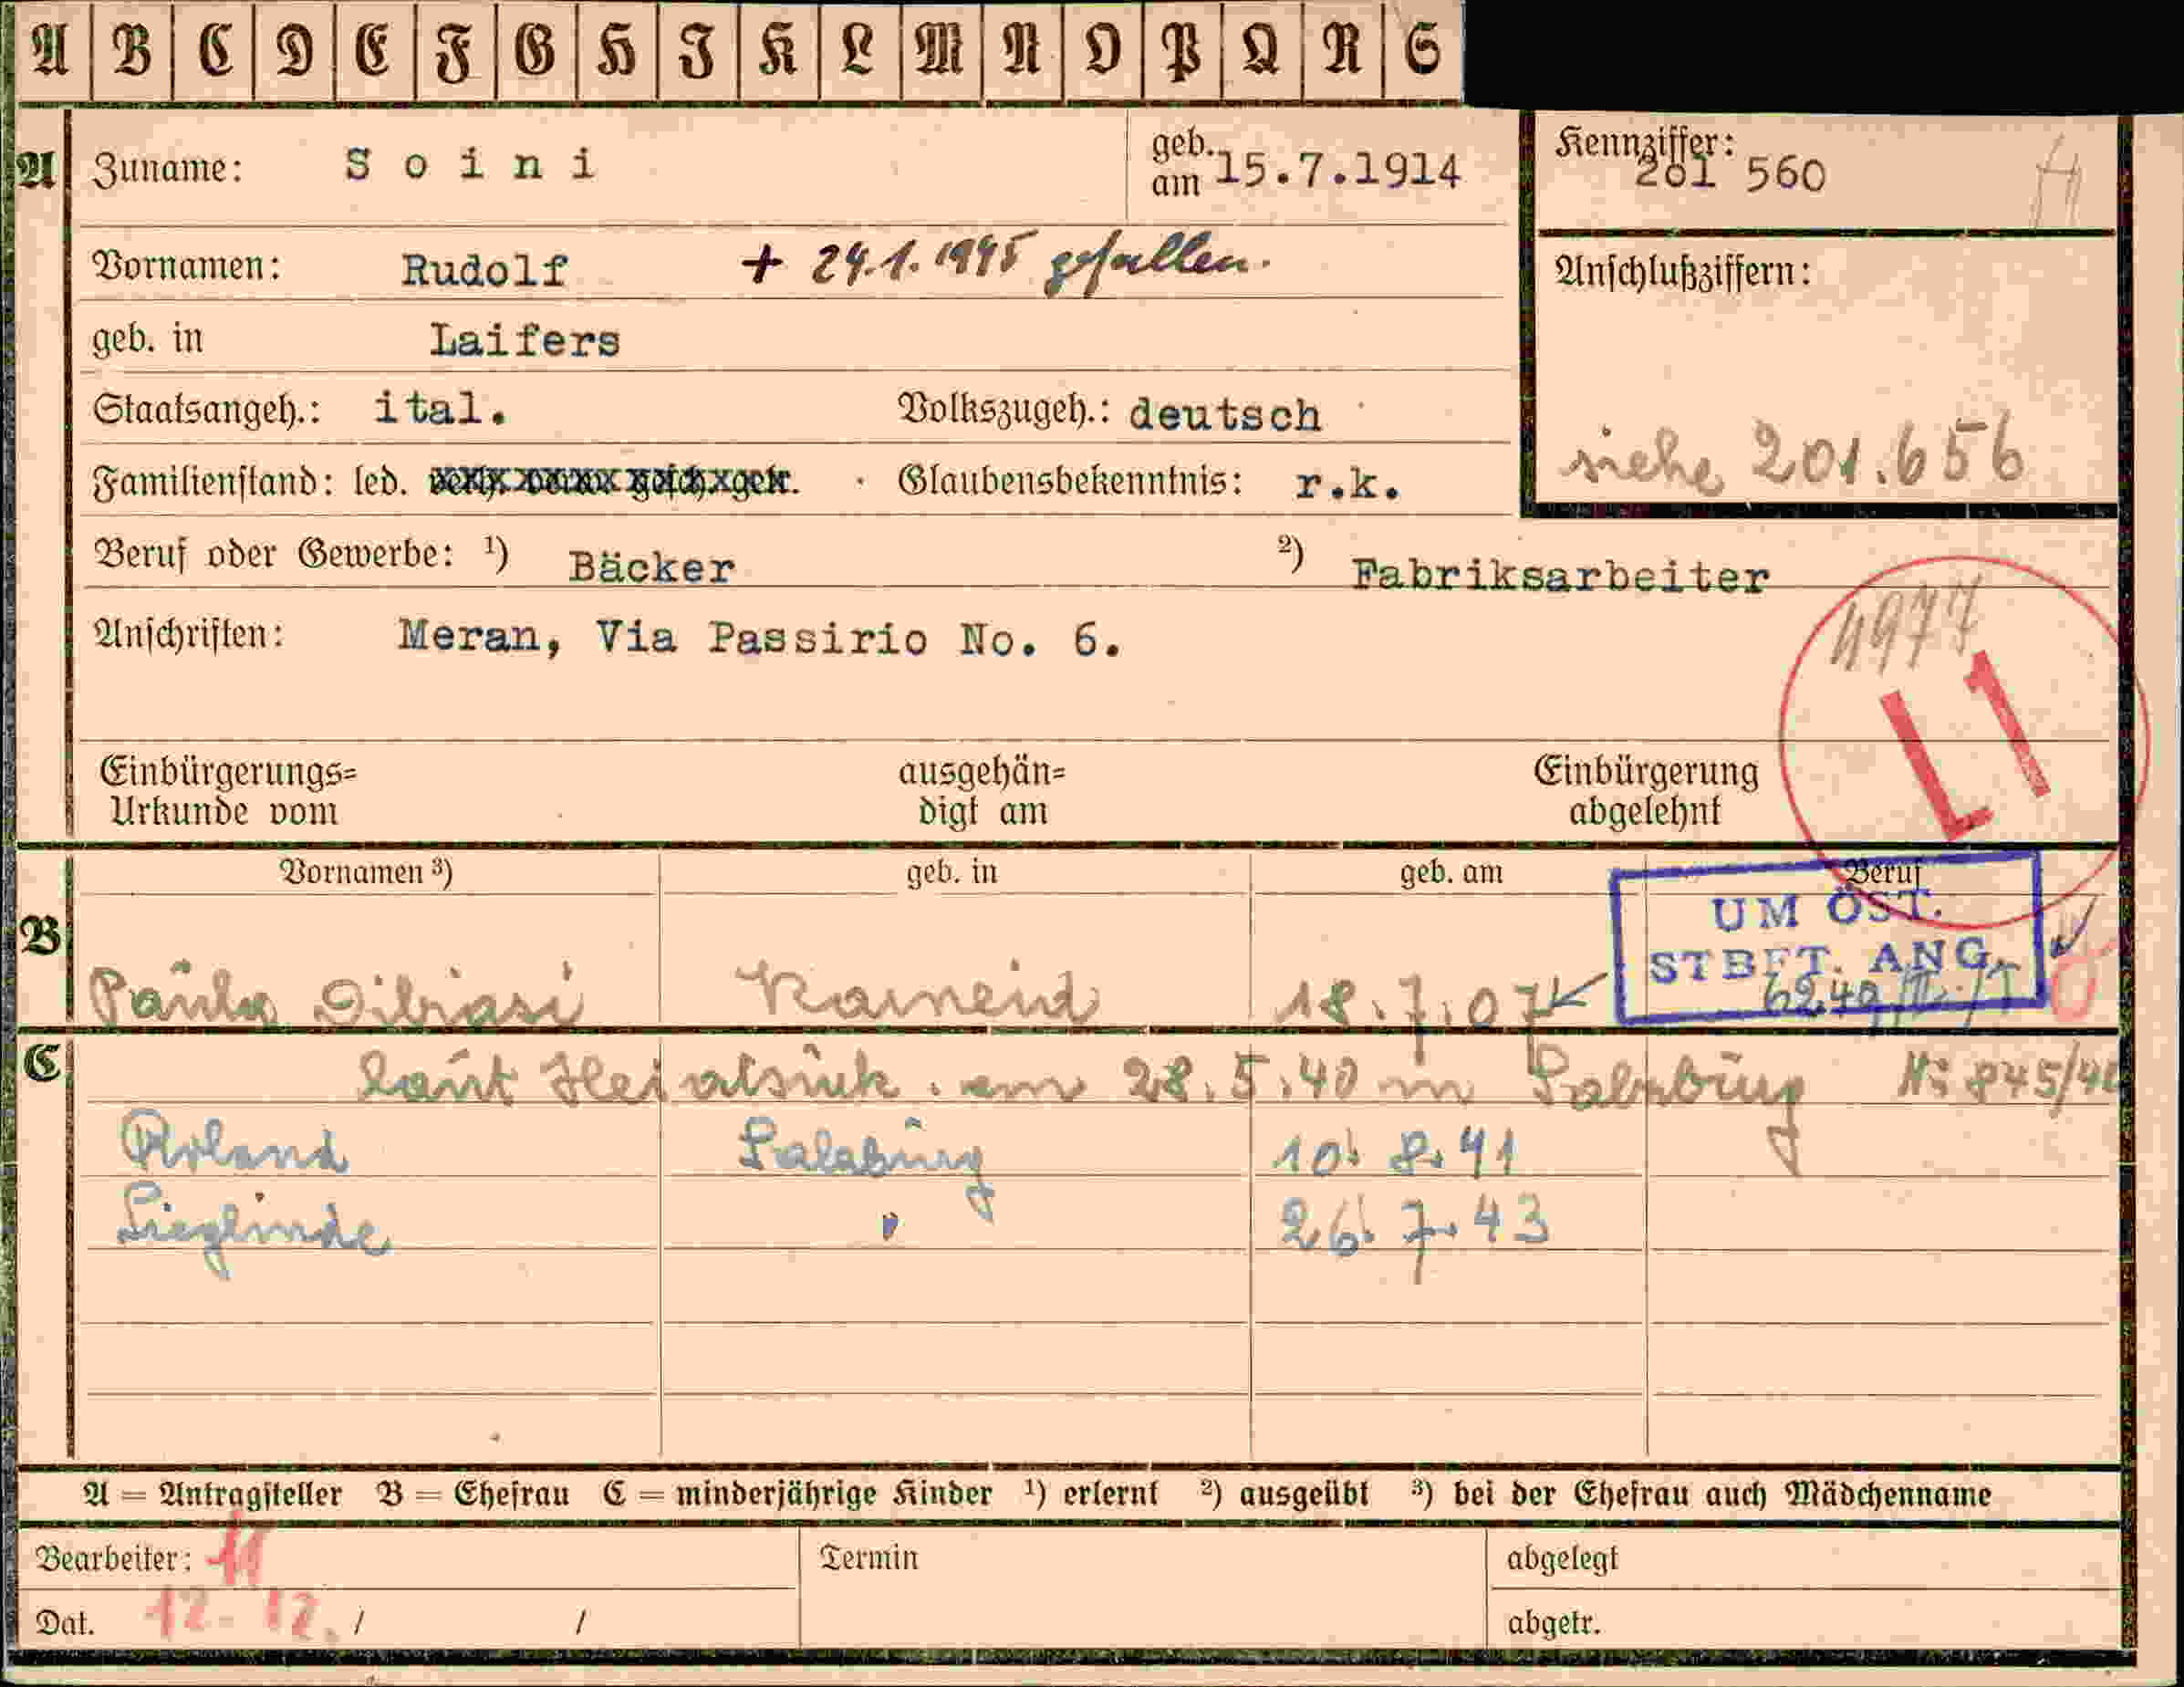 A B C D E F G H I K L M N O P Q R S
A Zuname: Soini geb. am 15.7.1914 Kennziffer: 201 560
Vornamen: Rudolf + 24.1.1945 gefallen. Anschlußziffern:
geb. in Laifers
Staatsangeh.: ital. Volkszugeh.: deutsch
siehe 201.656
Familienstand: led. Glaubensbekenntnis: r.k.
Beruf oder Gewerbe: ¹) Bäcker ²) Fabriksarbeiter
4977
Anschriften: Meran, Via Passirio No. 6.
L1
Einbürgerungs= ausgehän= Einbürgerung
Urkunde vom digt am abgelehnt
Vornamen ³) geb. in geb. am Beruf
UM ÖST.
STBFT. ANG.
B Paula Dibiasi Karneid 18.7.07
C laut Heiratsurk. am 28.5.40 in Salzburg No 845/40
Roland Salzburg 10. 8. 41
Sieglinde " 26. 7. 43
A = Antragsteller B = Ehefrau C = minderjährige Kinder ¹) erlernt ²) ausgeübt ³) bei der Ehefrau auch Mädchenname
Bearbeiter: 11 Termin abgelegt
Dat. 12. 12. / / abgetr.